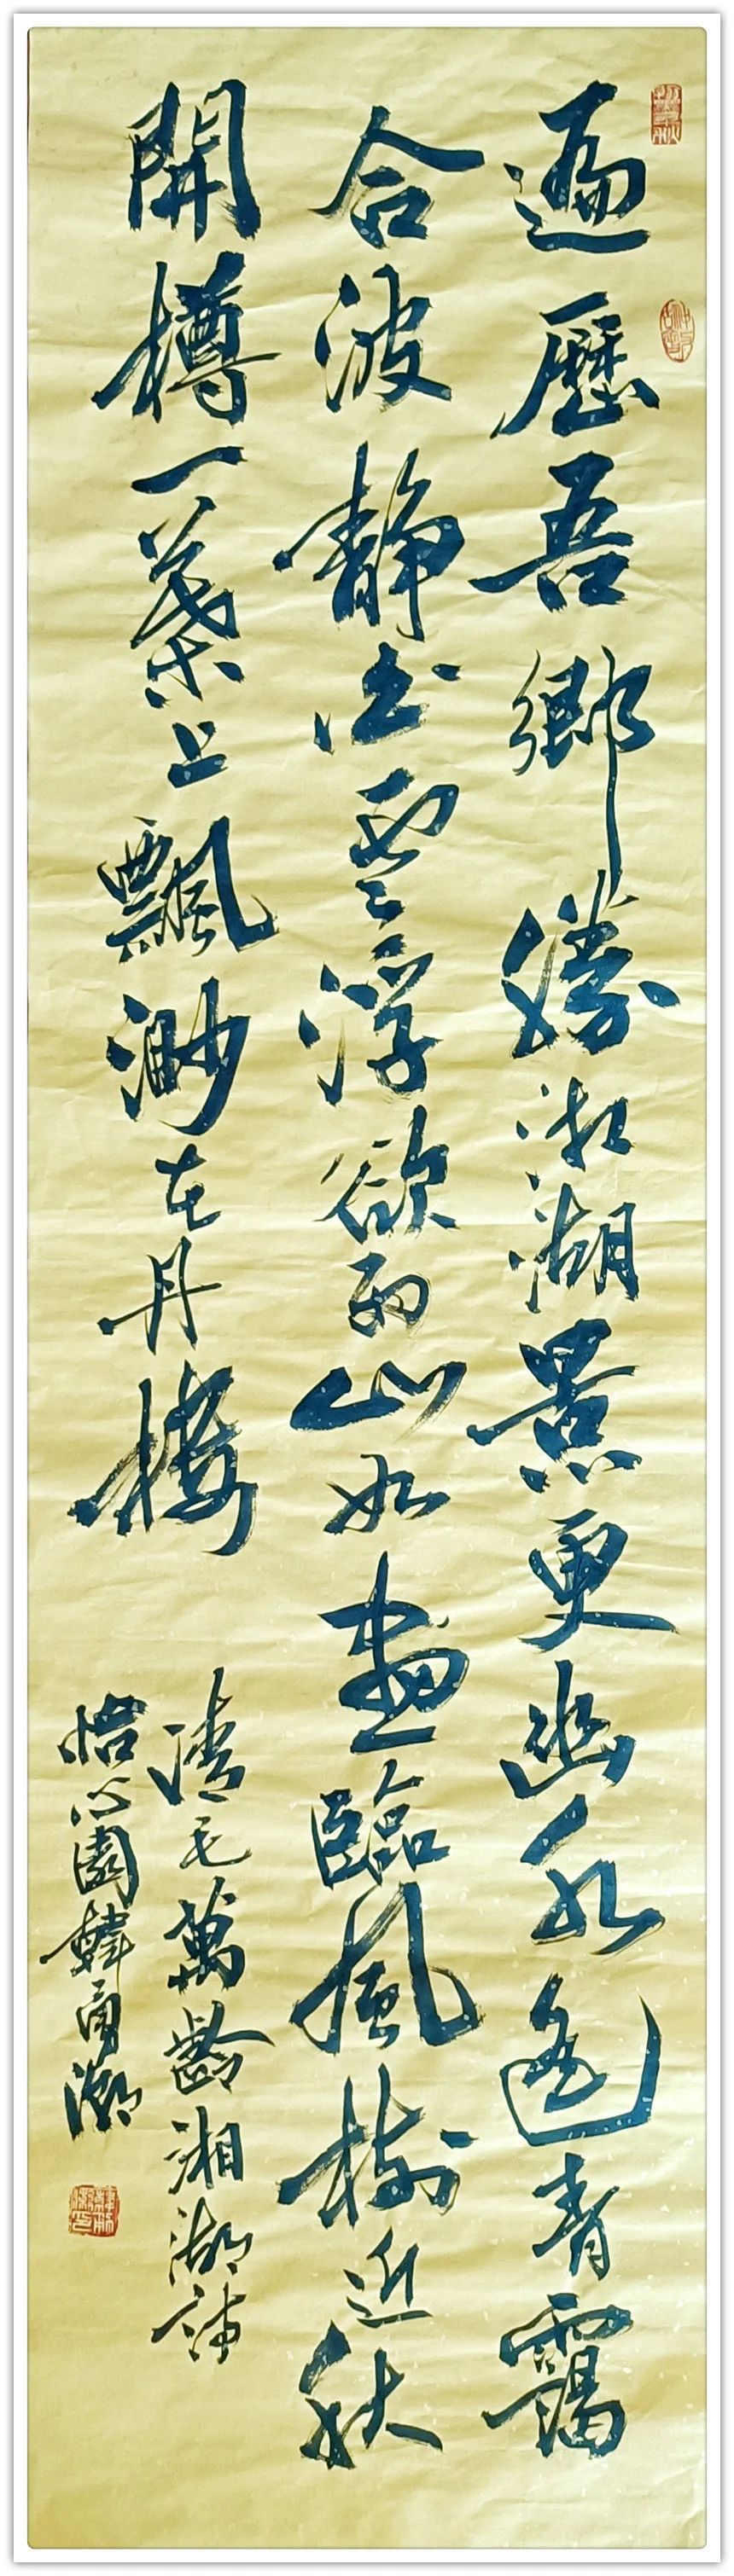 遍歷吾鄉勝湘湖景更幽水遙青靄
合波靜雲浮欲雨山如畫臨風樹近秋
開樽一葉上飄渺在丹樓
清毛萬齡湘湖詩
怡心園韓